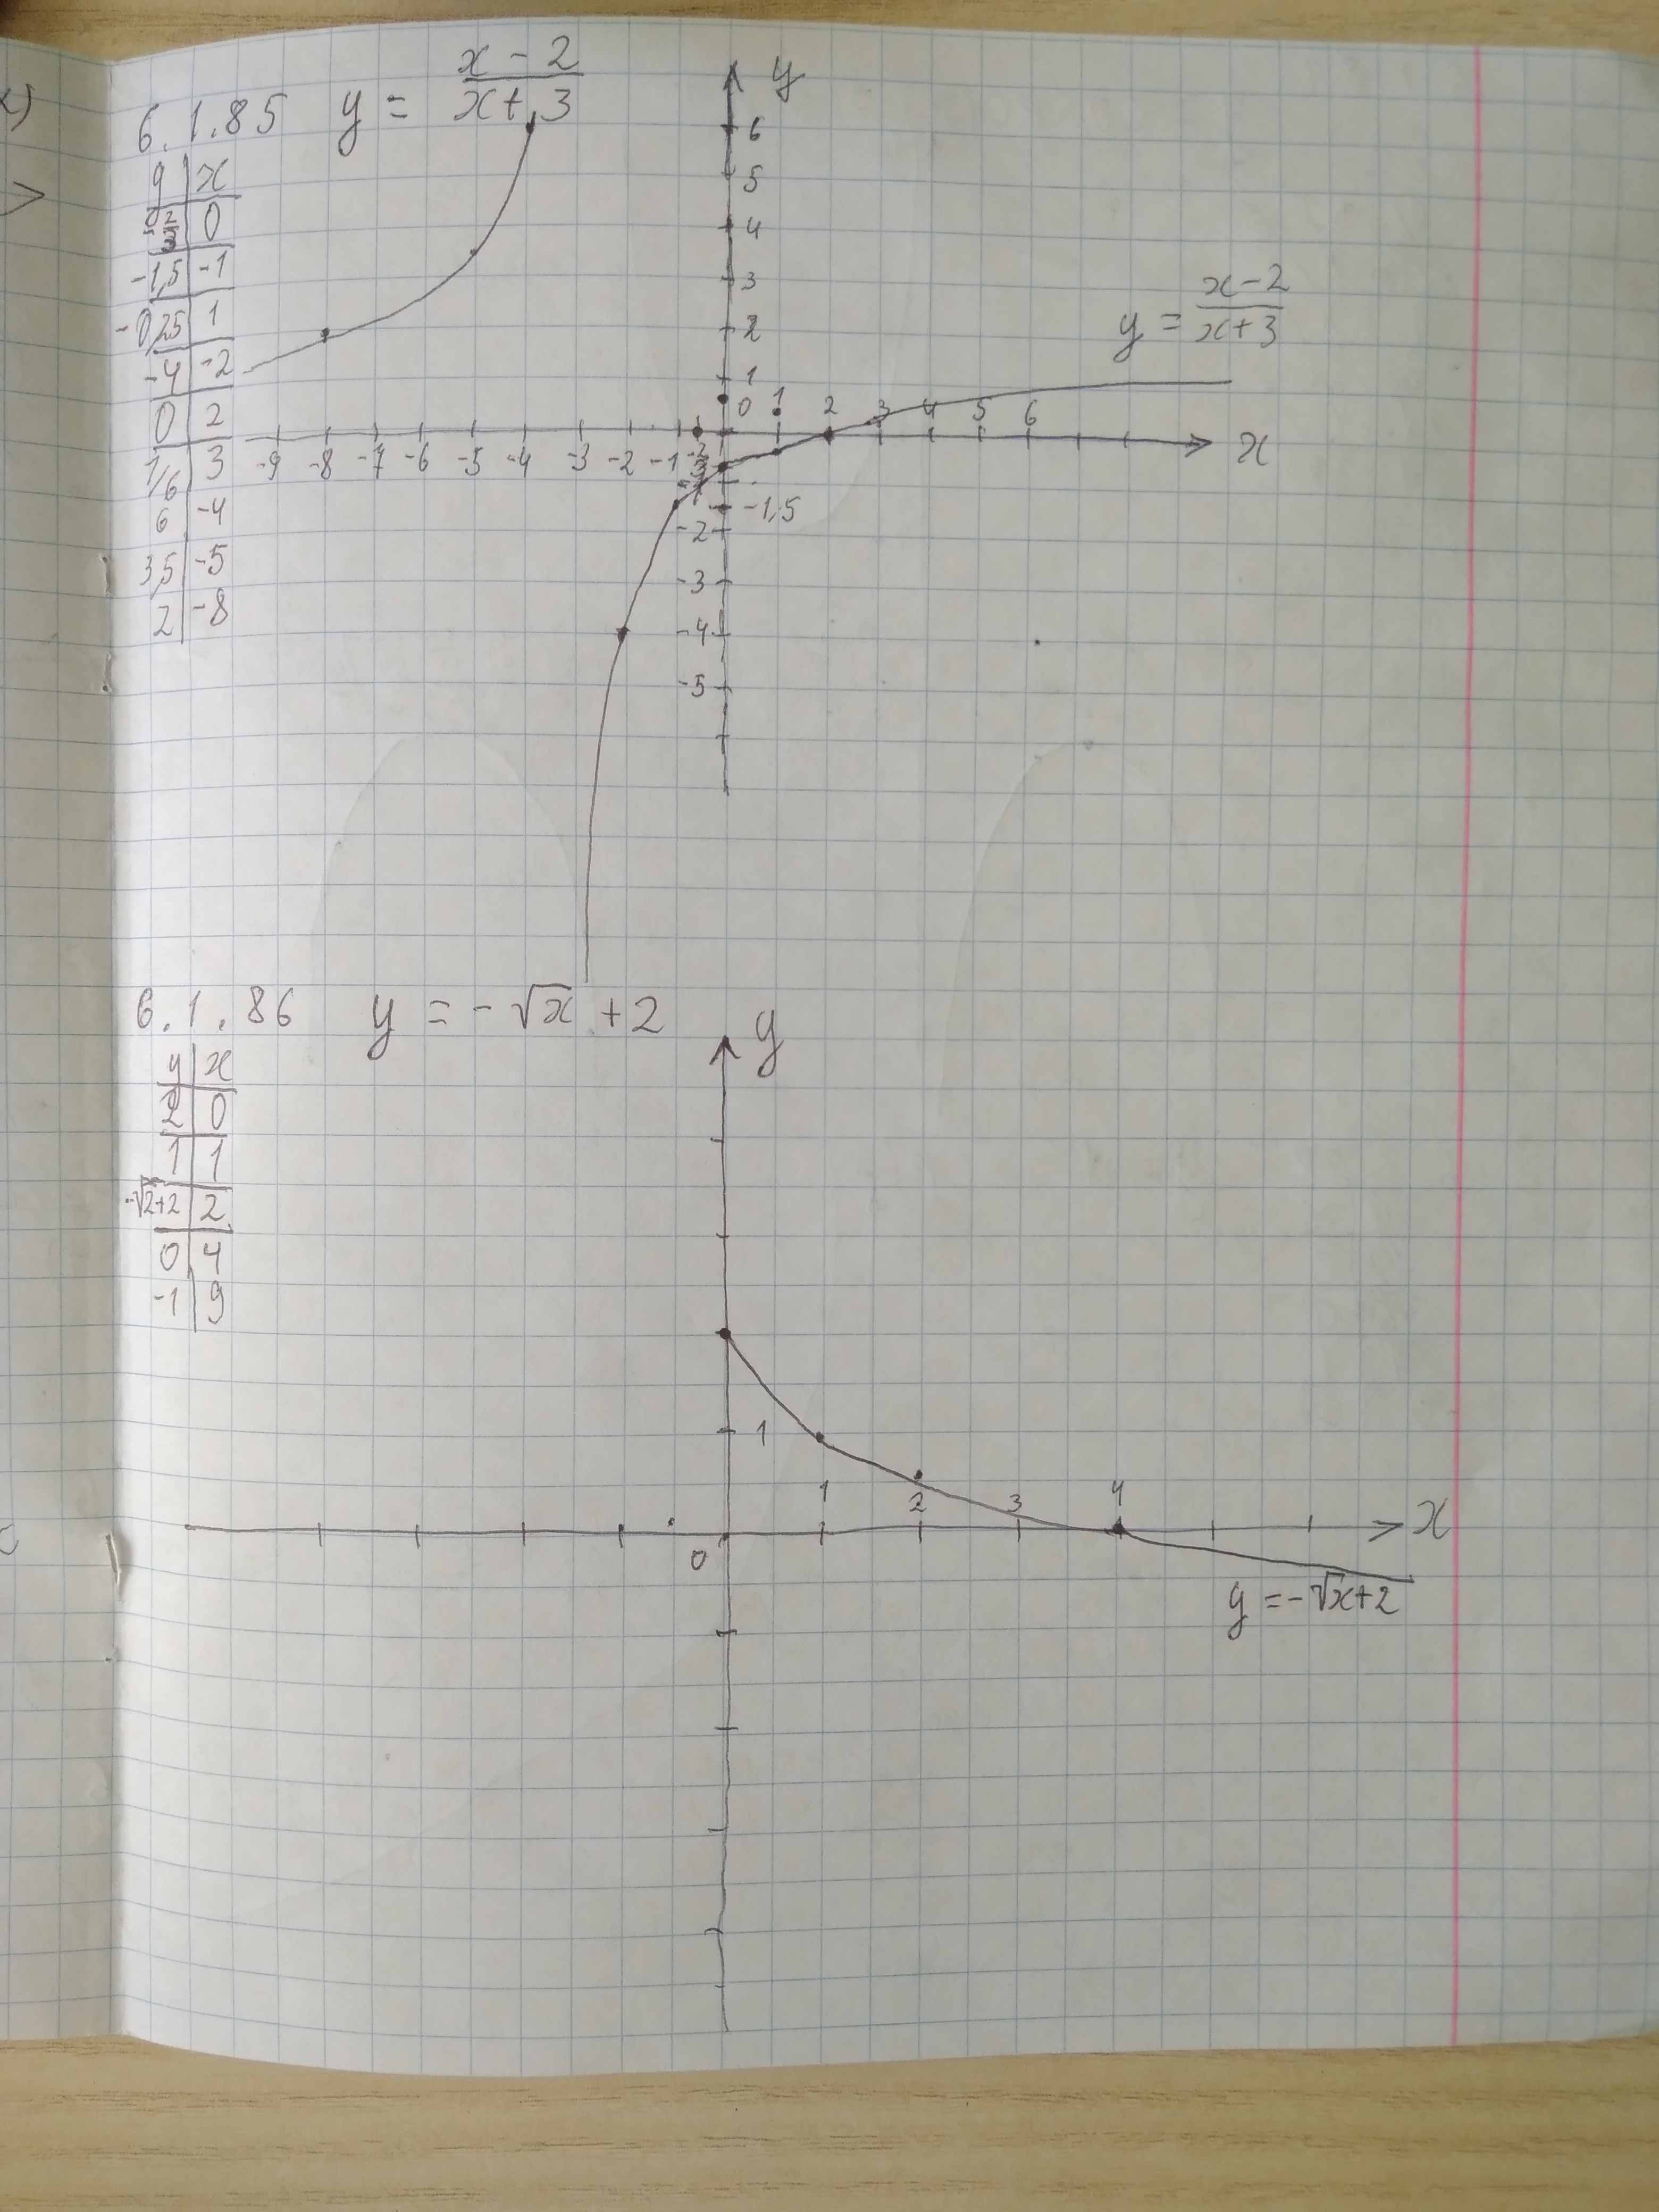 6.1.85 y = (x-2)/(x+3)
y | x
-2/3 | 0
-1,5 | -1
-0,25 | 1
-4 | -2
0 | 2
1/6 | 3
6 | -4
3,5 | -5
2 | -8
y
6
5
4
3
2
1
0 1 2 3 4 5 6
x
-9 -8 -7 -6 -5 -4 -3 -2 -1
-1,5
-2
-3
-4
-5
y = (x-2)/(x+3)
6.1.86 y = -√x +2
y | x
2 | 0
1 | 1
-√2+2 | 2
0 | 4
-1 | 9
y
1
1 2 3 4
x
0
y = -√x+2